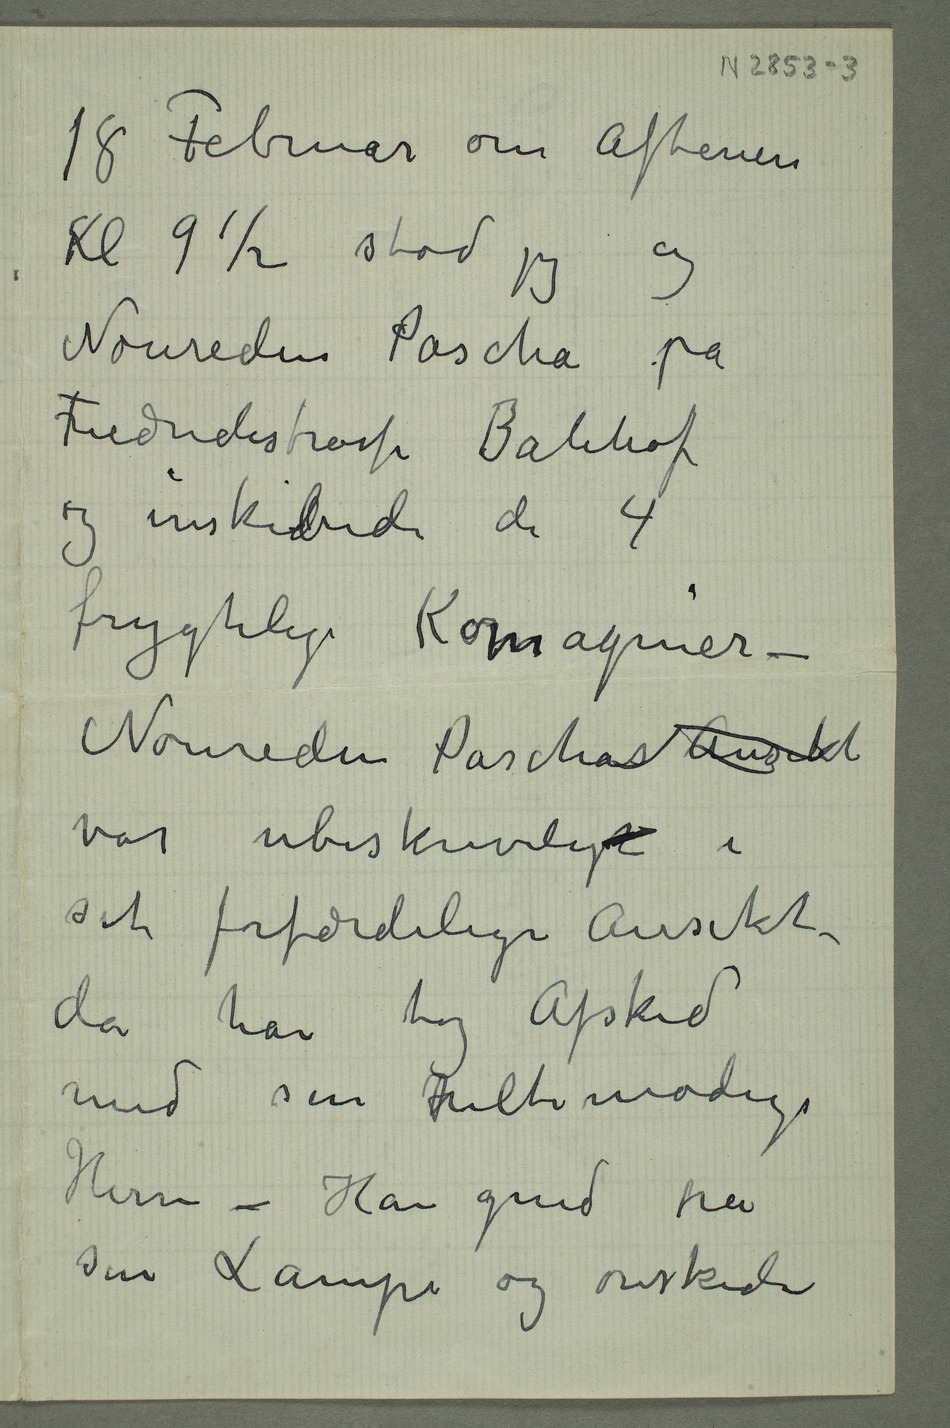 N 2853-3
18 Februar om Aftenen
Kl 9 1/2 stod jeg og
Noureden Pascha på
Friedrichstrasse Bahhof
og inskibede de 4
frygtelige Komagnier –
Noureden Paschas Ansikt
var ubeskrivelige i
sit forfærdelige Ansikt –
da han tog Afsked
med sin heltemodige
Herre – Han gned på
sin Lampe og ønskede